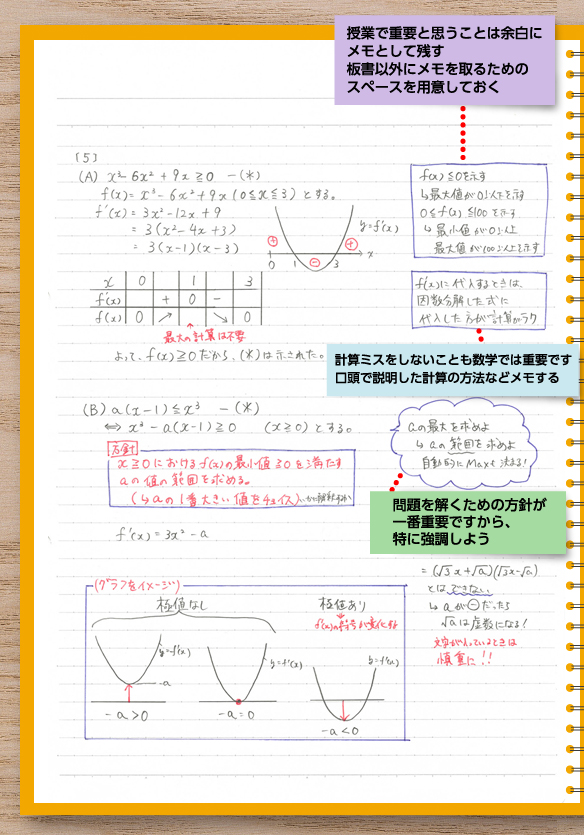 授業で重要と思うことは余白に
メモとして残す
板書以外にメモを取るための
スペースを用意しておく
[5]
(A) x³-6x²+9x≧0 —(*)
f(x)=x³-6x²+9x (0≦x≦3) とする。
f'(x)=3x²-12x+9
=3(x²-4x+3)
=3(x-1)(x-3)
+ - +
0 1 3 x
y=f'(x)
x 0 1 3
f'(x) + 0 -
f(x) 0 ↗ ↘ 0
↑
最大の計算は不要
よって、f(x)≧0だから、(*)は示された。
f(x)≦0を示す
↳最大値が0以下を示す
0≦f(x)≦100を示す
↳最小値が0以上
最大値が100以上を示す
f(x)に代入するときは、
因数分解した式に
代入した方が計算がラク
計算ミスをしないことも数学では重要です
口頭で説明した計算の方法などメモする
(B) a(x-1)≦x³ —(*)
⇔ x³-a(x-1)≧0 (x≧0)とする。
方針
x≧0におけるf(x)の最小値≧0を満たす
aの値の範囲を求める。
(↳aの1番大きい値をチョイス)
aの最大を求めよ
↳aの範囲を求めよ
自動的にMaxも決まる!
問題を解くための方針が
一番重要ですから、
特に強調しよう
f'(x)=3x²-a
=(√3x+√a)(√3x-√a)
とはできない
↳aが⊖だったら
√aは虚数になる!
文字が入っているときは
慎重に!!
(グラフをイメージ)
極値なし
極値あり
f'(x)の符号が変化する
y=f'(x)
-a
-a>0
y=f'(x)
-a=0
y=f'(x)
-a<0